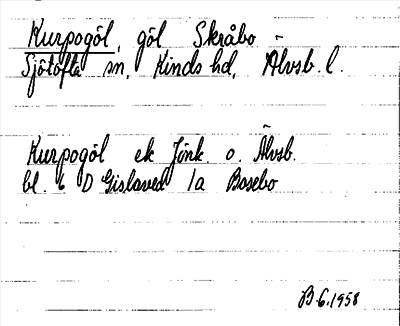 Kurpogöl, göl Skråbo -
Sjötofta sn, Kinds hd, Älvsb. l.
Kurpogöl ek Jönk. o. Älvsb.
bl. 6 D Gislaved 1a Bosebo
B 6.1958